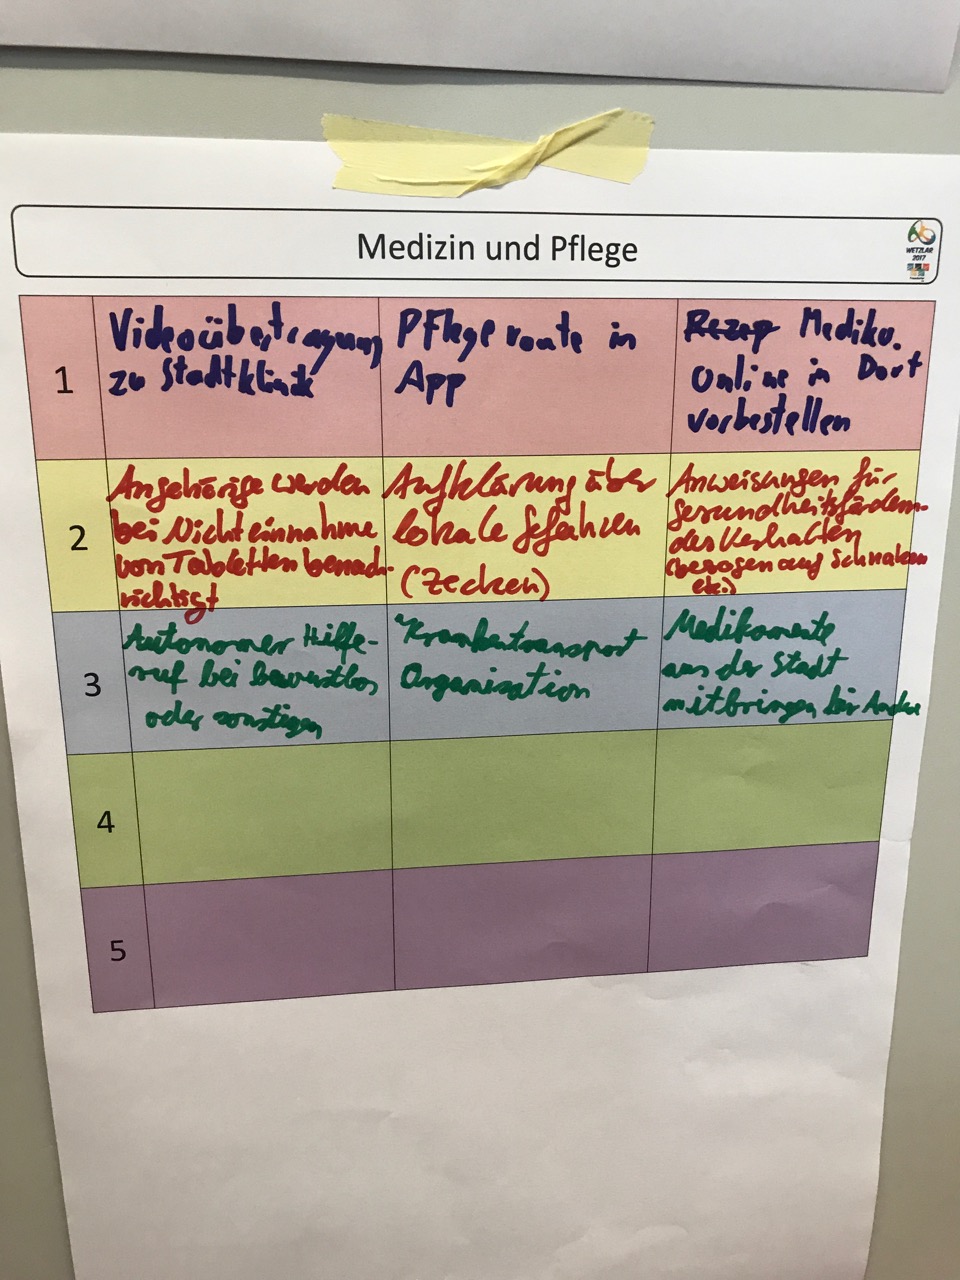 Medizin und Pflege
WETZLAR
2017
1
Videoübertragung
zu Stadtklinik
Pflegeroute in
App
Rezep Mediko.
Online in Dorf
vorbestellen
2
Angehörige werden
bei Nichteinnahme
von Tabletten benach-
richtigt
Aufklärung über
lokale Gefahren
(Zecken)
Anweisungen für
gesundheitsfördern-
des Verhalten
(bezogen auf Schnaken
etc.)
3
Autonomer Hilfe-
ruf bei bewusstlos
oder sonstigen
Krankentransport
Organisation
Medikamente
aus der Stadt
mitbringen für Andere
4
5